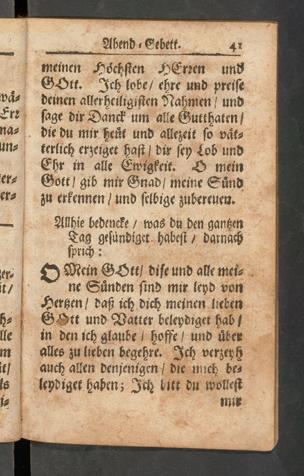 Abend-Gebett. 41
meinen Höchsten HErren und
GOtt. Ich lobe/ ehre und preise
deinen allerheiligisten Nahmen/ und
sage dir Danck um alle Gutthaten/
die du mir heüt und allezeit so vät-
terlich erzeiget hast/ dir sey Lob und
Ehr in alle Ewigkeit. O mein
Gott/ gib mir Gnad/ meine Sünd
zu erkennen/ und selbige zubereuen.
Allhie bedencke/ was du den gantzen
Tag gesündiget habest/ darnach
sprich:
O Mein GOtt/ dise und alle mei-
ne Sünden sind mir leyd von
Hertzen/ daß ich dich meinen lieben
GOtt und Vatter beleydiget hab/
in den ich glaube/ hoffe/ und über
alles zu lieben begehre. Ich verzeyh
auch allen denjenigen/ die mich be-
leydiget haben; Ich bitt du wollest
mir